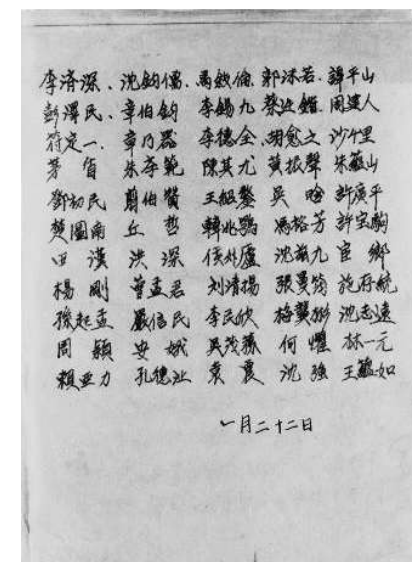 李濟深、沈鈞儒、馬敘倫、郭沫若、譚平山
彭澤民、章伯鈞 李錫九 蔡廷鍇、周建人
符定一、章乃器 李德全、胡愈之 沙千里
茅盾 朱學範 陳其尤 黃振聲 朱蘊山
鄧初民 翦伯贊 王紹鏊 吳晗 許廣平
楚圖南 丘哲 韓兆鶚 馮裕芳 許宝駒
田漢 洪深 侯外廬 沈茲九 宦鄉
楊剛 曹孟君 刘清揚 張曼筠 施存統
孫起孟 嚴信民 李民欣 梅龔彬 沈志遠
周穎 安娥 吳茂蓀 何懼 林一元
賴亚力 孔德沚 袁襄 沈強 王蘊如
一月二十二日